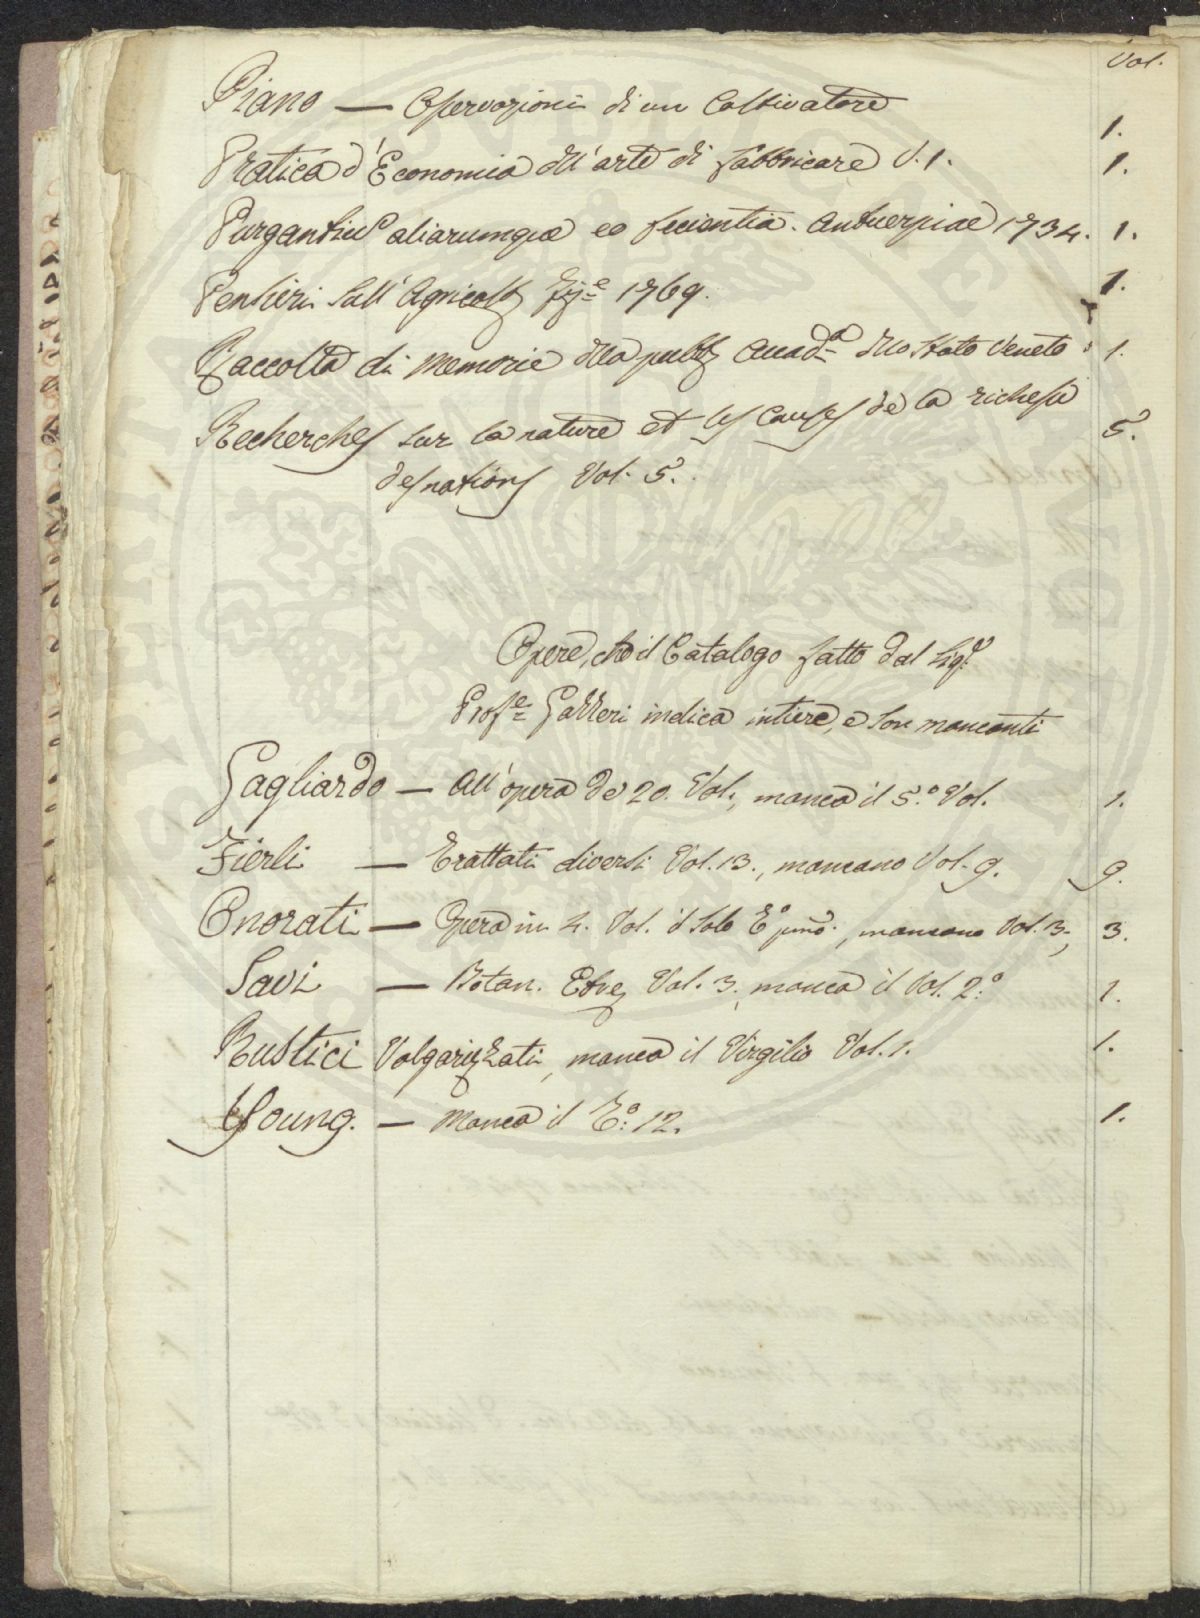 Vol.
Piano — Osservazioni di un Coltivatore 1.
Pratica d'Economia dell'arte di fabbricare V. 1. 1.
Purgantium aliarumque eo facientia. Antuerpiae 1734. 1.
Pensieri sull'Agricolt. 1769. 1.
Raccolta di Memorie della pubb. Accad.a dello Stato Veneto 1.
Recherches sur la nature et les causes de la richesse 5.
des nations Vol. 5.
Opere, che il Catalogo fatto dal Sig.r
Prof.e Gazzeri indica intiere, e son mancanti
Gagliardo — All'opera de 20. Vol., manca il 5.o Vol. 1.
Fierli — Trattati diversi Vol. 13., mancano Vol. 9. 9.
Onorati — Opera in 4. Vol. il solo T.o pmo., mancano Vol. 3., 3.
Savi — Botan. Etrus. Vol. 3. manca il Vol. 2.o 1.
Rustici Volgarizzati, manca il Virgilio Vol. 1. 1.
Young. — Manca il T.o 12. 1.